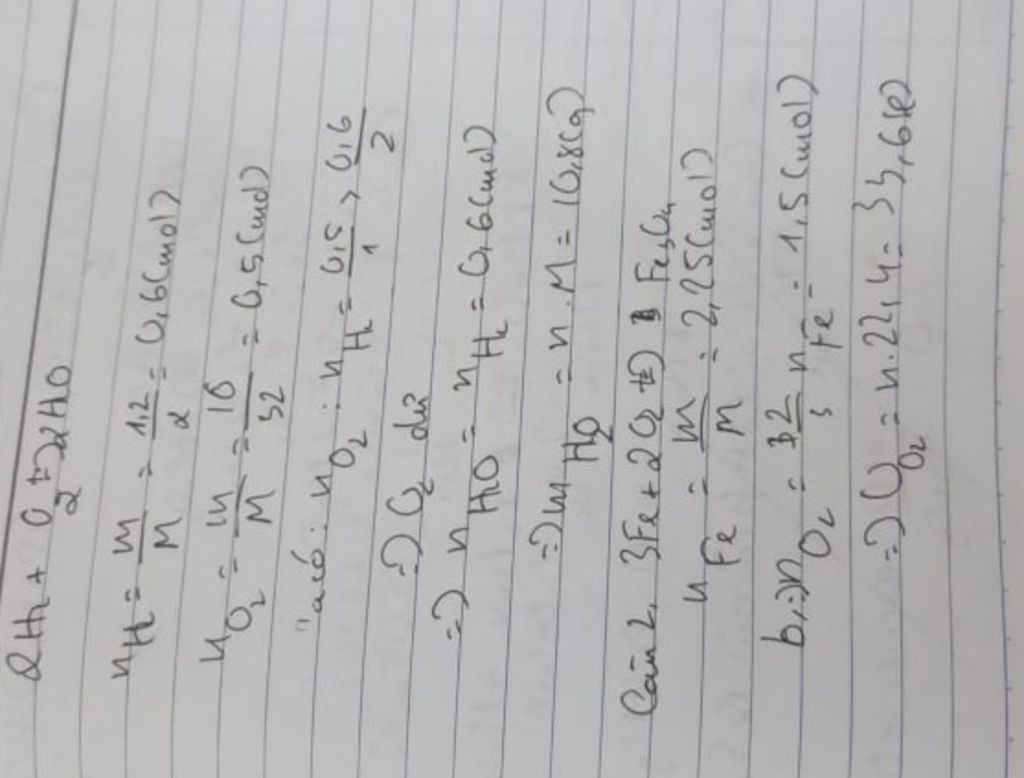 2H₂ + O₂ t° → 2H₂O
n H₂ = m/M = 1,2/2 = 0,6 (mol)
n O₂ = m/M = 16/32 = 0,5 (mol)
Ta có: n O₂ : n H₂ = 0,5/1 > 0,6/2
=> O₂ dư
=> n H₂O = n H₂ = 0,6 (mol)
=> m H₂O = n . M = 10,8 (g)
Câu 2, 3Fe + 2O₂ t° → Fe₃O₄
n Fe = m/M = 2,25 (mol)
b, => n O₂ = 2/3 n Fe = 1,5 (mol)
=> V O₂ = n . 22,4 = 33,6 (l)